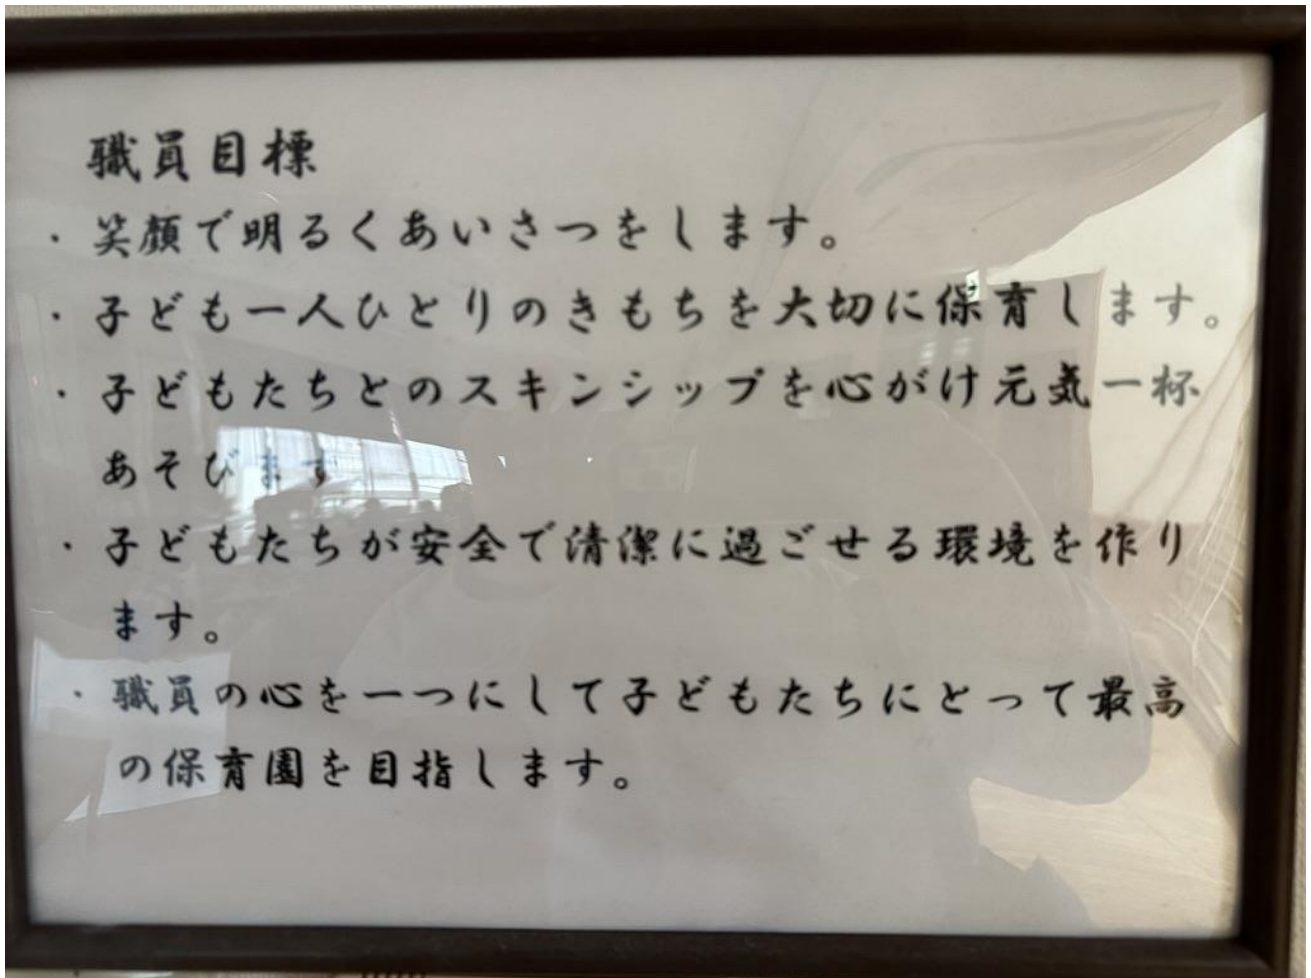 職員目標
・笑顔で明るくあいさつをします。
・子ども一人ひとりのきもちを大切に保育します。
・子どもたちとのスキンシップを心がけ元気一杯
あそびます
・子どもたちが安全で清潔に過ごせる環境を作り
ます。
・職員の心を一つにして子どもたちにとって最高
の保育園を目指します。